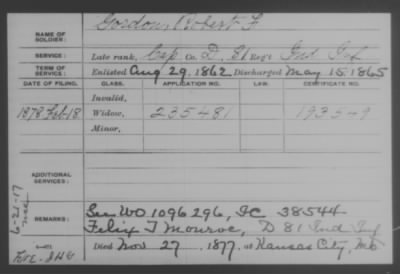 Gordon, Robert F
NAME OF SOLDIER:
SERVICE: Late rank, Cap Co. D, 81 Reg't Ind Inf
TERM OF SERVICE: Enlisted Aug 29, 1862 Discharged May 15, 1865
DATE OF FILING. CLASS. APPLICATION NO. LAW. CERTIFICATE NO.
Invalid,
1878 Feb-18 Widow, 235481 193549
Minor,
ADDITIONAL SERVICES:
REMARKS: See WO 1096296, IC 38544
Felix T Monroe, D 81 Ind Inf
Died Nov 27, 1877, at Kansas City, Mo
6-21-17